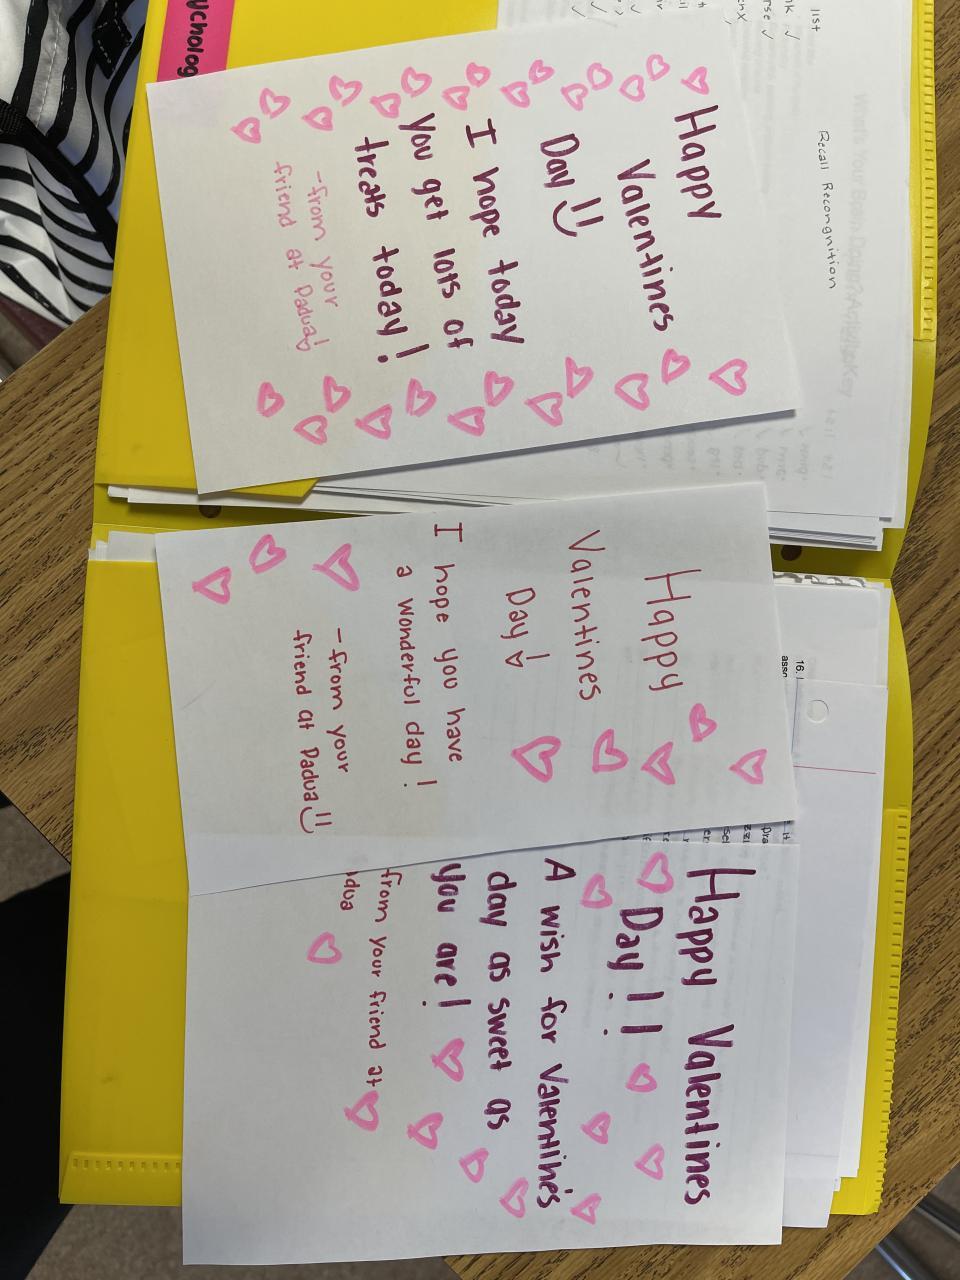 Happy
Valentines
Day
I hope today
you get lots of
treats today!
-from your
friend at Padua!
Happy
Valentines
Day!
I hope you have
a wonderful day!
-from your
friend at Padua
Happy Valentines
Day!!
A wish for Valentine's
day as sweet as
you are!
from your friend at
dua
ycholog
Recall Recongnition
list
16.